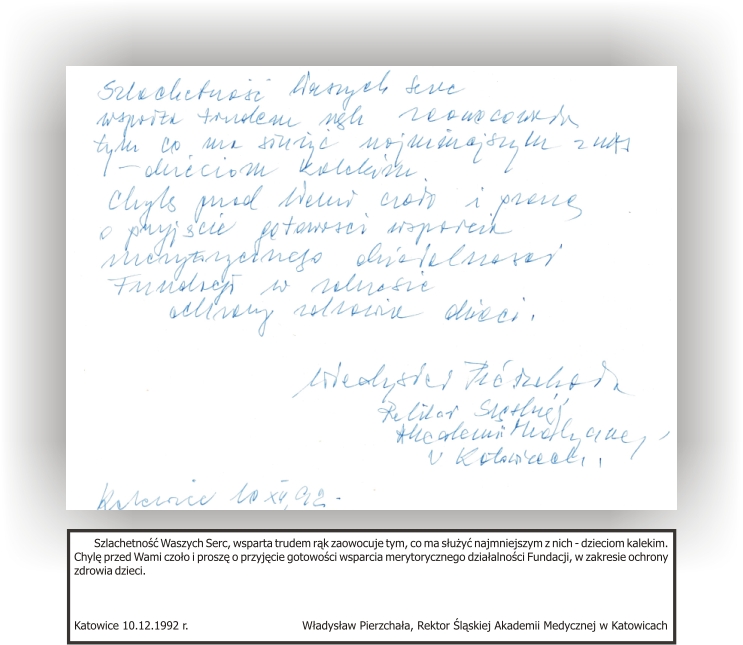 Szlachetność Waszych Serc
wsparta trudem rąk zaowocowała
tym co ma służyć najmniejszym z nas
– dzieciom kalekim.
Chylę przed Wami czoło i proszę
o przyjęcie gotowości wsparcia
merytorycznego działalności
Fundacji w zakresie
ochrony zdrowia dzieci.
Władysław Pierzchała
Rektor Śląskiej
Akademii Medycznej
w Katowicach
Katowice 10 XII, 92 -
Szlachetność Waszych Serc, wsparta trudem rąk zaowocuje tym, co ma służyć najmniejszym z nich - dzieciom kalekim.
Chylę przed Wami czoło i proszę o przyjęcie gotowości wsparcia merytorycznego działalności Fundacji, w zakresie ochrony
zdrowia dzieci.
Katowice 10.12.1992 r. Władysław Pierzchała, Rektor Śląskiej Akademii Medycznej w Katowicach